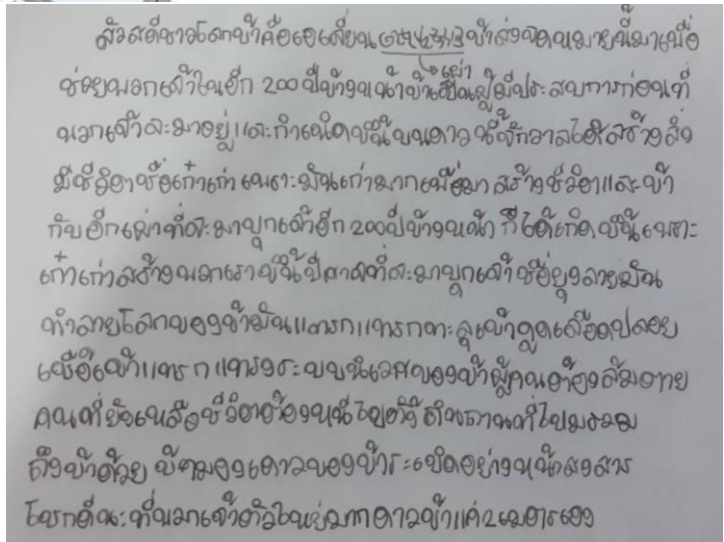 สวัสดีชาวโลกข้าคือเอเลี่ยน ข้าส่งจดหมายนี้มาเพื่อ
เผ่า
ช่วยพวกเจ้าในอีก 200 ปีข้างหน้าข้าเป็นผู้มีประสบการก่อนที่
พวกเจ้าจะมาอยู่และกำเนิดขึ้นบนดาวนี้จักวาลได้สร้างสิ่ง
มีชีวิตชื่อเก๋าเก่าเพราะมันเก่ามากเพื่อมาสร้างชีวิตและข้า
กับอีกเผ่าที่จะมาบุกเจ้าอีก 200ปีข้างหน้า ก็ได้เกิดขึ้นเพราะ
เก๋าเก่าสร้างพวกเราขึ้นปีศาจที่จะมาบุกเจ้าชื่อยุงลายมัน
ทำลายโลกของข้ามันแทรกแทรกทะลุเข้าดูดเลือดปล่อย
เชื้อเข้าแทรกแทรงระบบนิเวศของข้าผู้คนต้องล้มตาย
คนที่ยังเหลือชีวิตต้องหนีไปตั้งถิ่นถานที่ไปมรวม
ถึงข้าด้วย ข้ามองดาวของข้าระเบิดอย่างหน้าสงสาร
โชกดีนะที่พวกเจ้าตัวใหญ่มากดาวข้าแค่2เมตรเอง